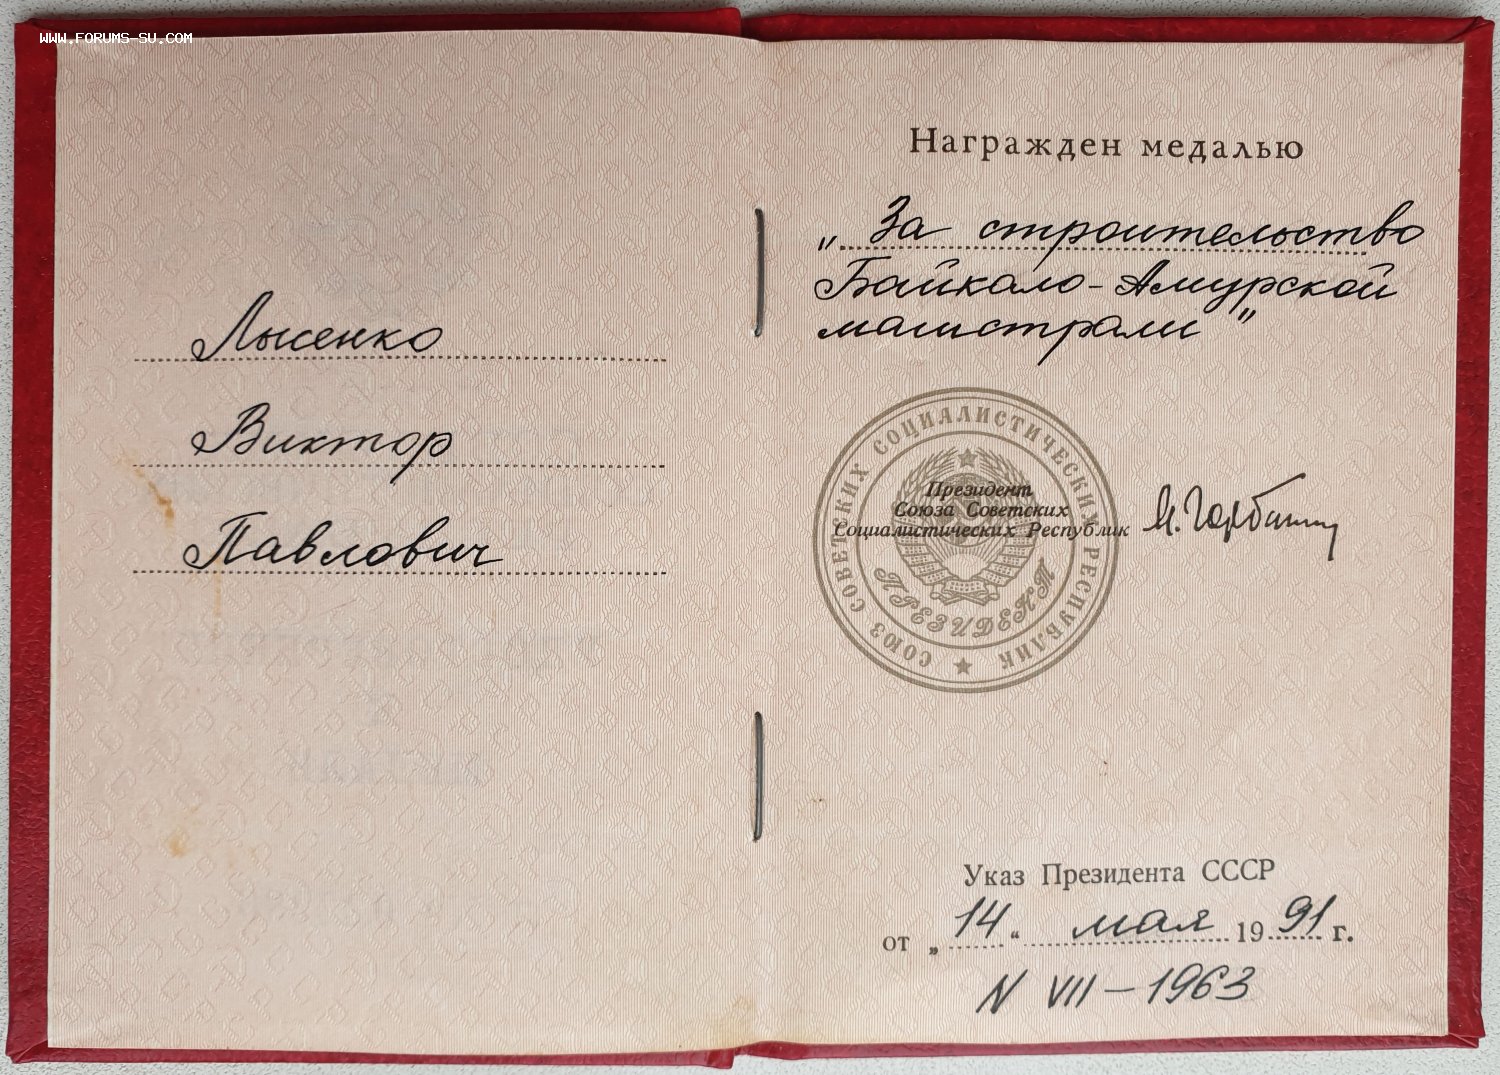 WWW.FORUMS-SU.COM
Лысенко
Виктор
Павлович
Награжден медалью
„За строительство
Байкало-Амурской
магистрали"
СОЮЗ СОВЕТСКИХ СОЦИАЛИСТИЧЕСКИХ РЕСПУБЛИК
ПРЕЗИДЕНТ
Президент
Союза Советских
Социалистических Республик
М. Горбачев
Указ Президента СССР
от „14“ мая 1991 г.
N VII-1963